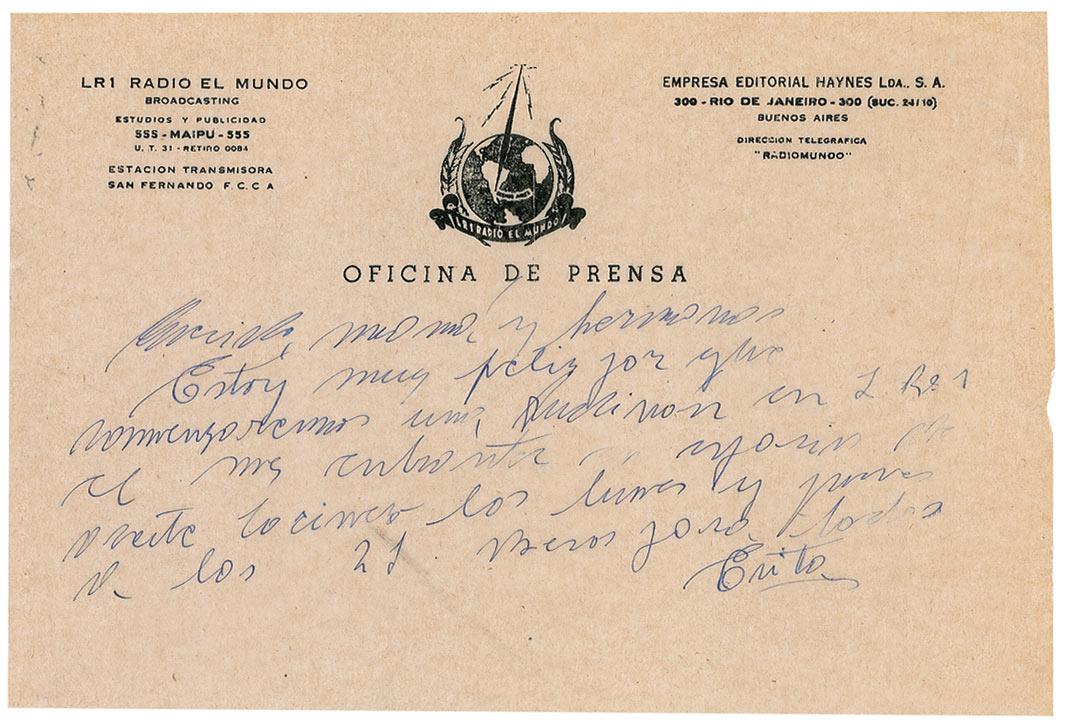 LR1 RADIO EL MUNDO
BROADCASTING
ESTUDIOS Y PUBLICIDAD
555 - MAIPU - 555
U. T. 31 - RETIRO 0084
ESTACION TRANSMISORA
SAN FERNANDO F. C. C A
EMPRESA EDITORIAL HAYNES LDA.. S. A.
300 - RIO DE JANEIRO - 300 (SUC. 24/10)
BUENOS AIRES
DIRECCION TELEGRAFICA
"RADIOMUNDO"
LR1 RADIO EL MUNDO
OFICINA DE PRENSA
mama y hermanos
Estoy muy feliz por que
comenzaremos una en L. R. 1
el mes entrante
aceite los lunes y jueves
a las 21 besos para todos
Evita